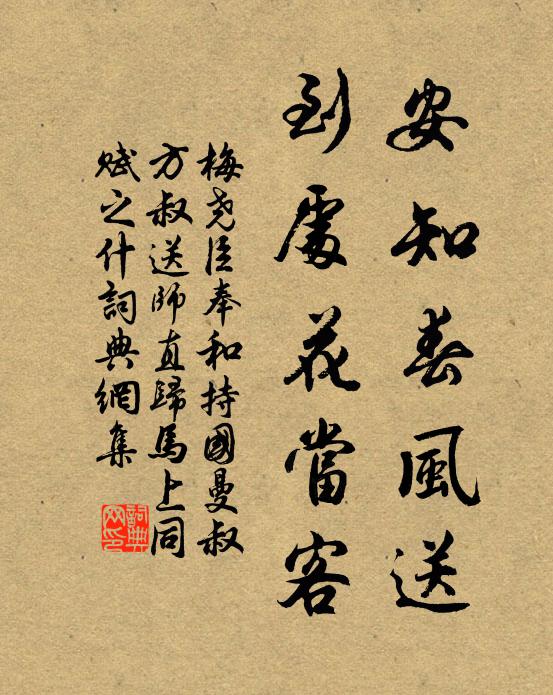 安知春風送
到處花當客
梅堯臣奉和持國曼叔
方叔送師直歸馬上同
賦之什詞典網集
詞典网印